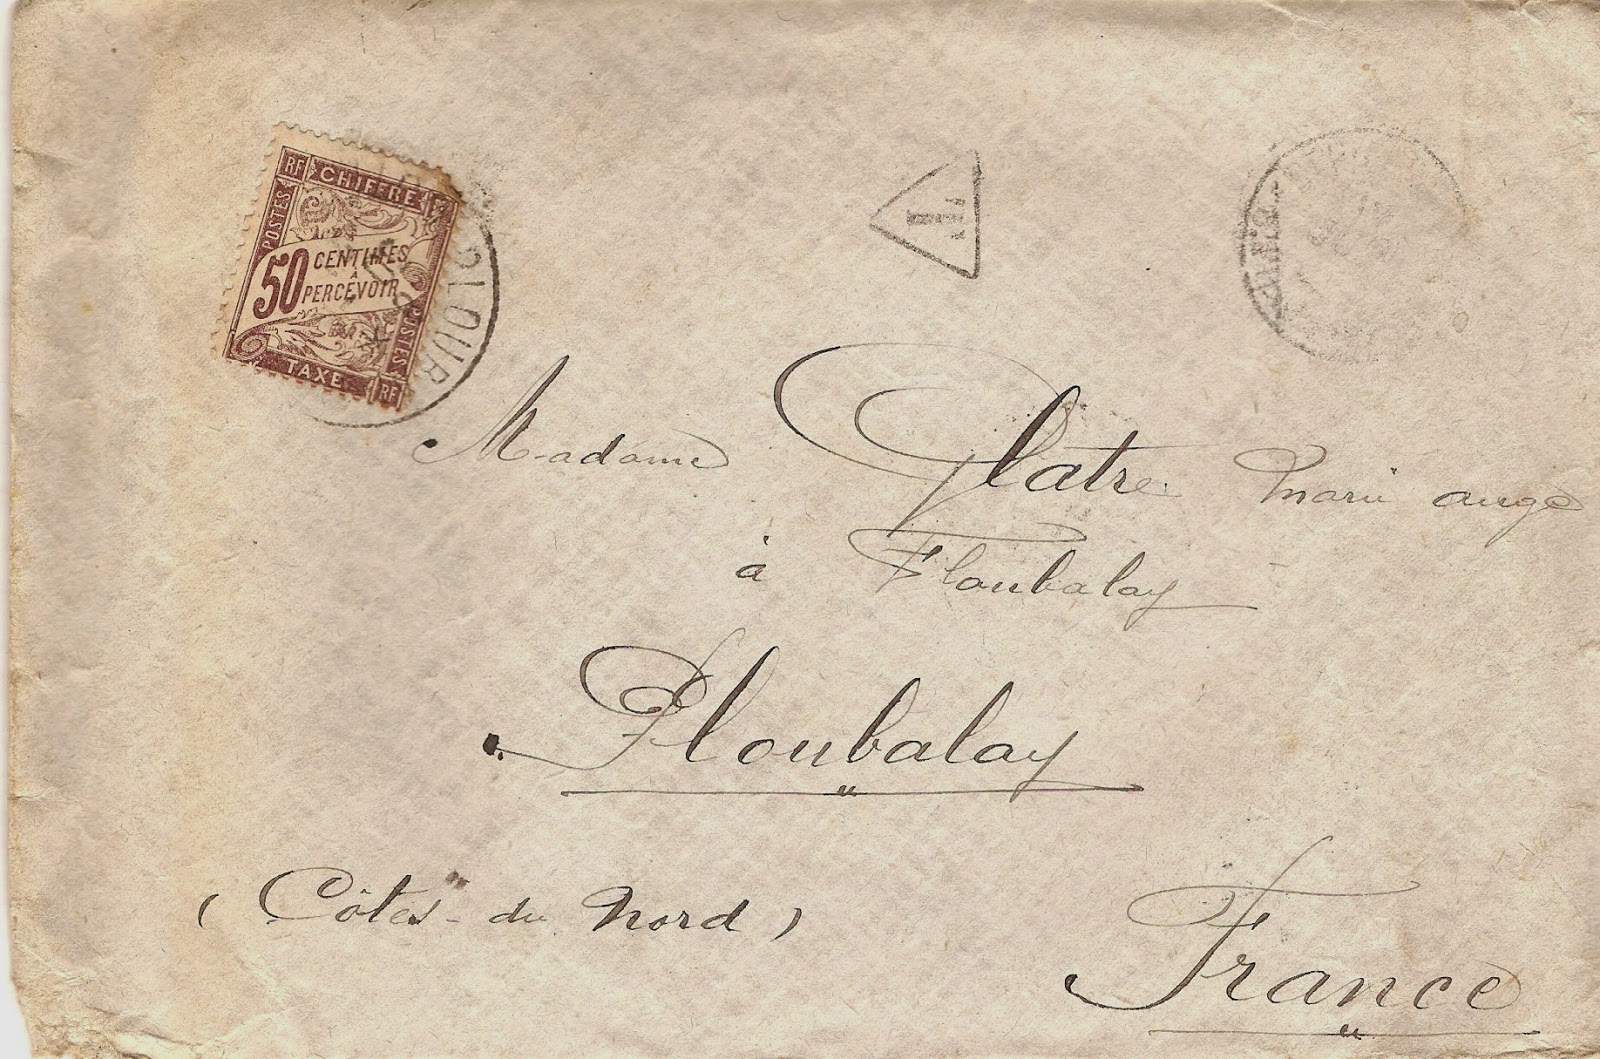 RF CHIFFRE
POSTES
50 CENTIMES
A
PERCEVOIR
POSTES
TAXE RF
T
Madame Platre Marie ange
à Ploubalay
Ploubalay
(Côtes-du Nord)
France